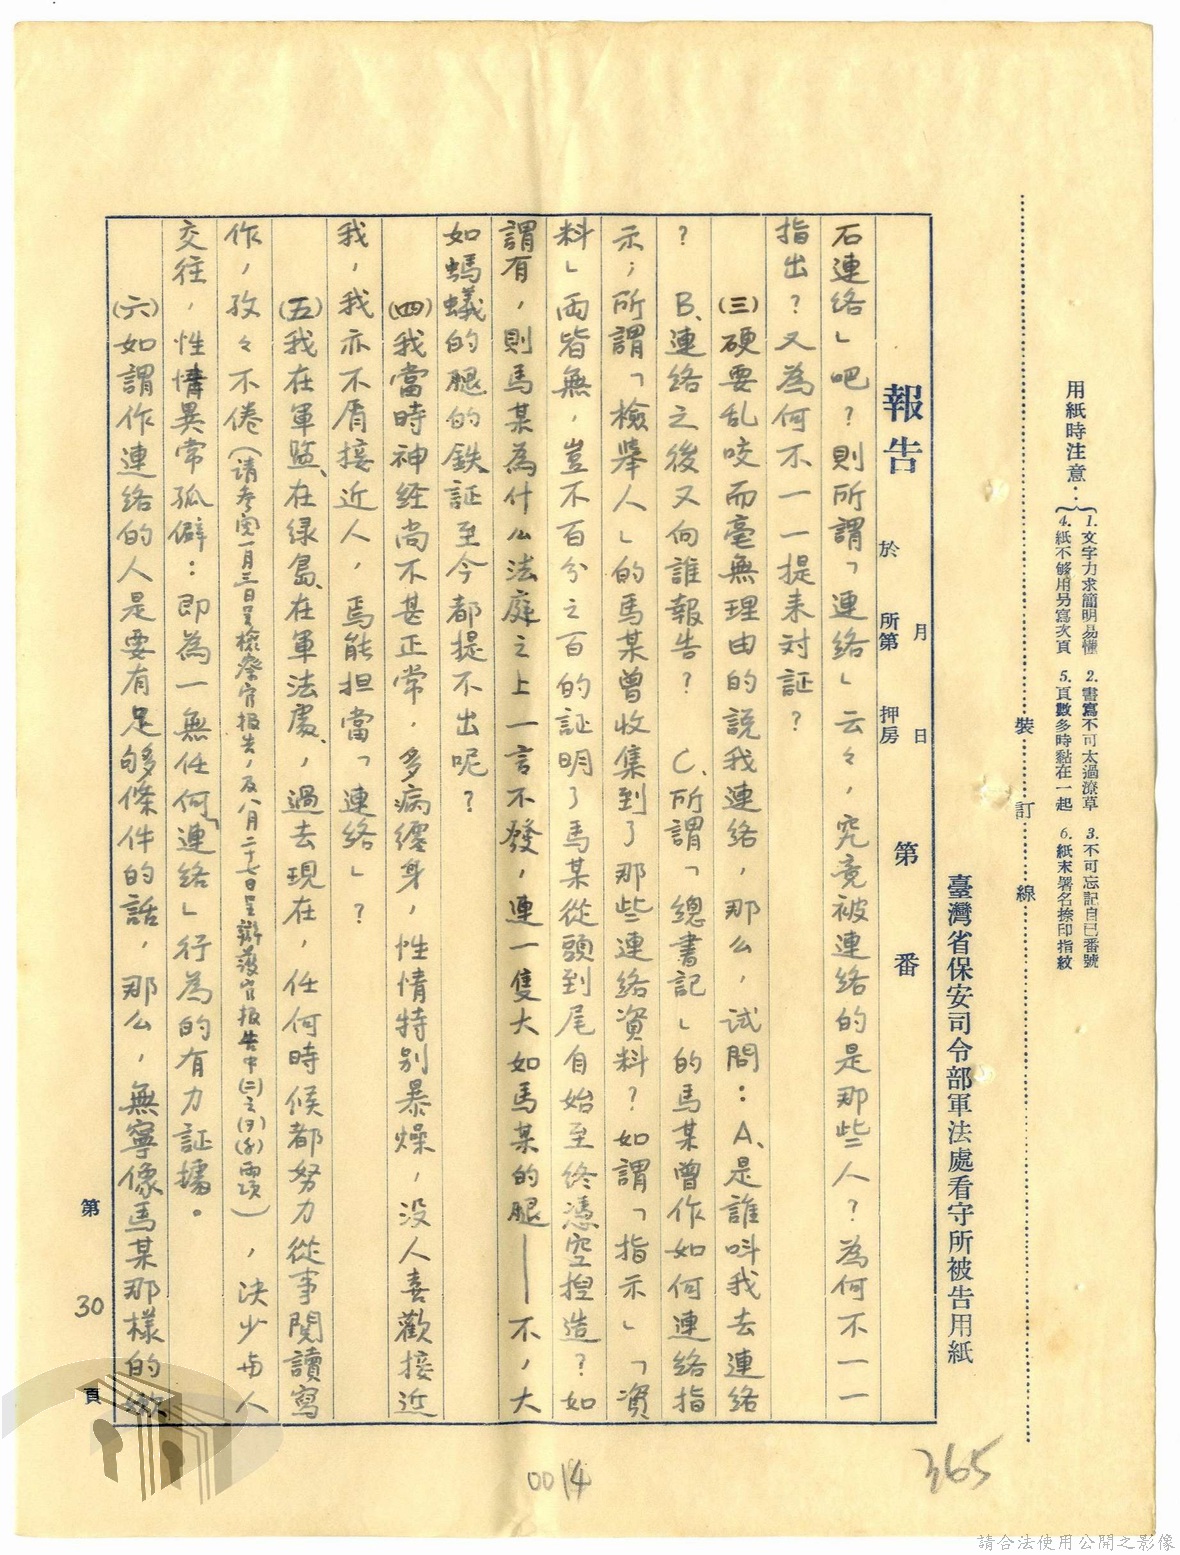 用紙時注意：
1. 文字力求簡明易懂 2. 書寫不可太過潦草 3. 不可忘記自己番號
4. 紙不够用另寫次頁 5. 頁數多時黏在一起 6. 紙末署名捺印指紋
裝 訂 線
臺灣省保安司令部軍法處看守所被告用紙
報告 於 月 日
所第 押房 第 番
石連络」吧？則所謂「連络」云々，究竟被連络的是那些人？為何不一一
指出？又為何不一一提来对証？
(三)硬要乱咬而毫無理由的説我連络，那么，試問：A、是誰叫我去連络
？ B、連络之後又向誰報告？ C、所謂「總書記」的馬某曾作如何連络指
示；所謂「檢舉人」的馬某曾收集到了那些連络資料？如謂「指示」「資
料」両皆無，豈不百分之百的証明了馬某從頭到尾自始至终憑空捏造？如
謂有，則馬某為什么法庭之上一言不發，連一隻大如馬某的腿——不，大
如螞蟻的腿的鉄証至今都提不出呢？
(四)我當時神经尚不甚正常，多病纏身，性情特别暴燥，没人喜歡接近
我，我亦不屑接近人，焉能担當「連络」？
(五)我在軍監、在绿島、在軍法處、，過去現在，任何時候都努力從事閱讀寫
作，孜々不倦(请参阅一月三日呈檢察官报告，及八月二十七日呈辯護官报告中(二)之(ヲ)(ㄋ)両項)，决少与人
交往，性情異常孤僻：即為一無任何「連络」行為的有力証據。
(六)如謂作連络的人是要有足够條件的話，那么，無寧像馬某那樣的
第 30 頁
0014
365
請合法使用公開之影像